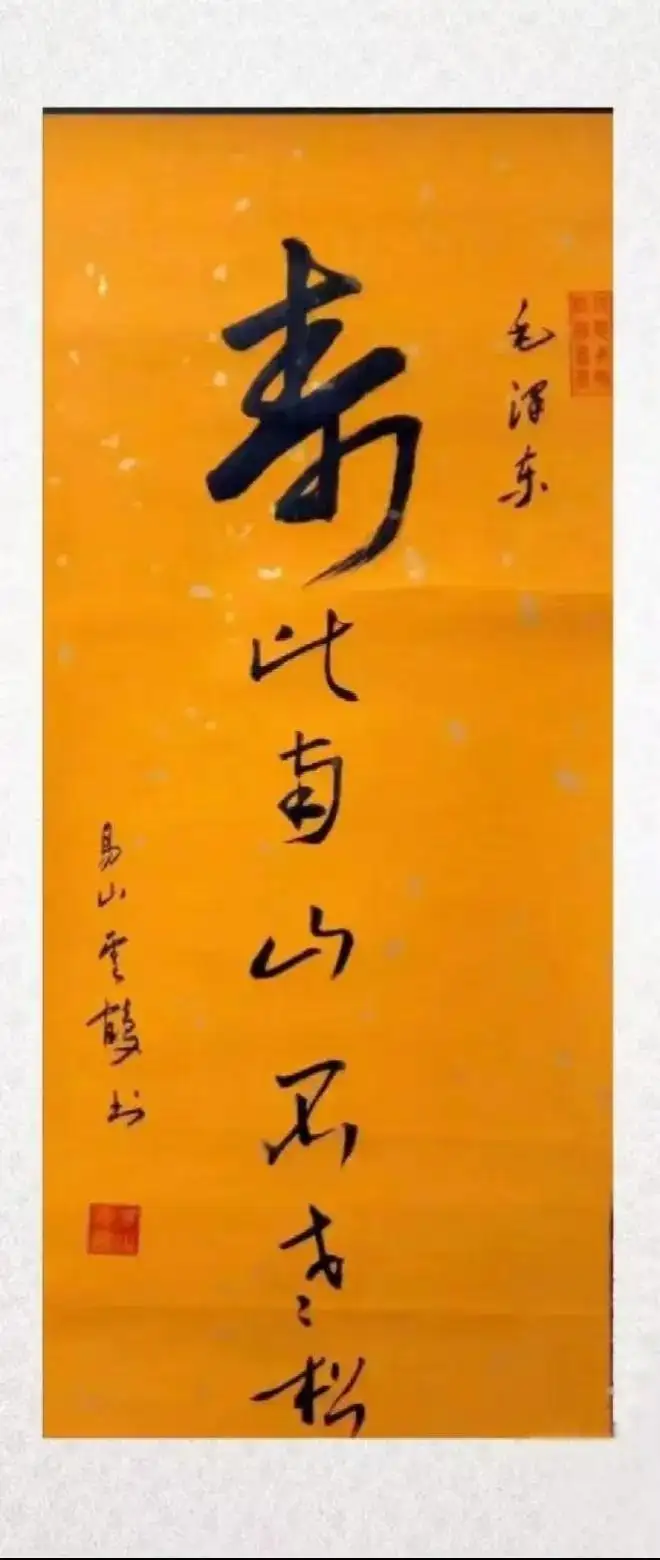 毛澤东
寿比南山不老松
易山雲鹤书